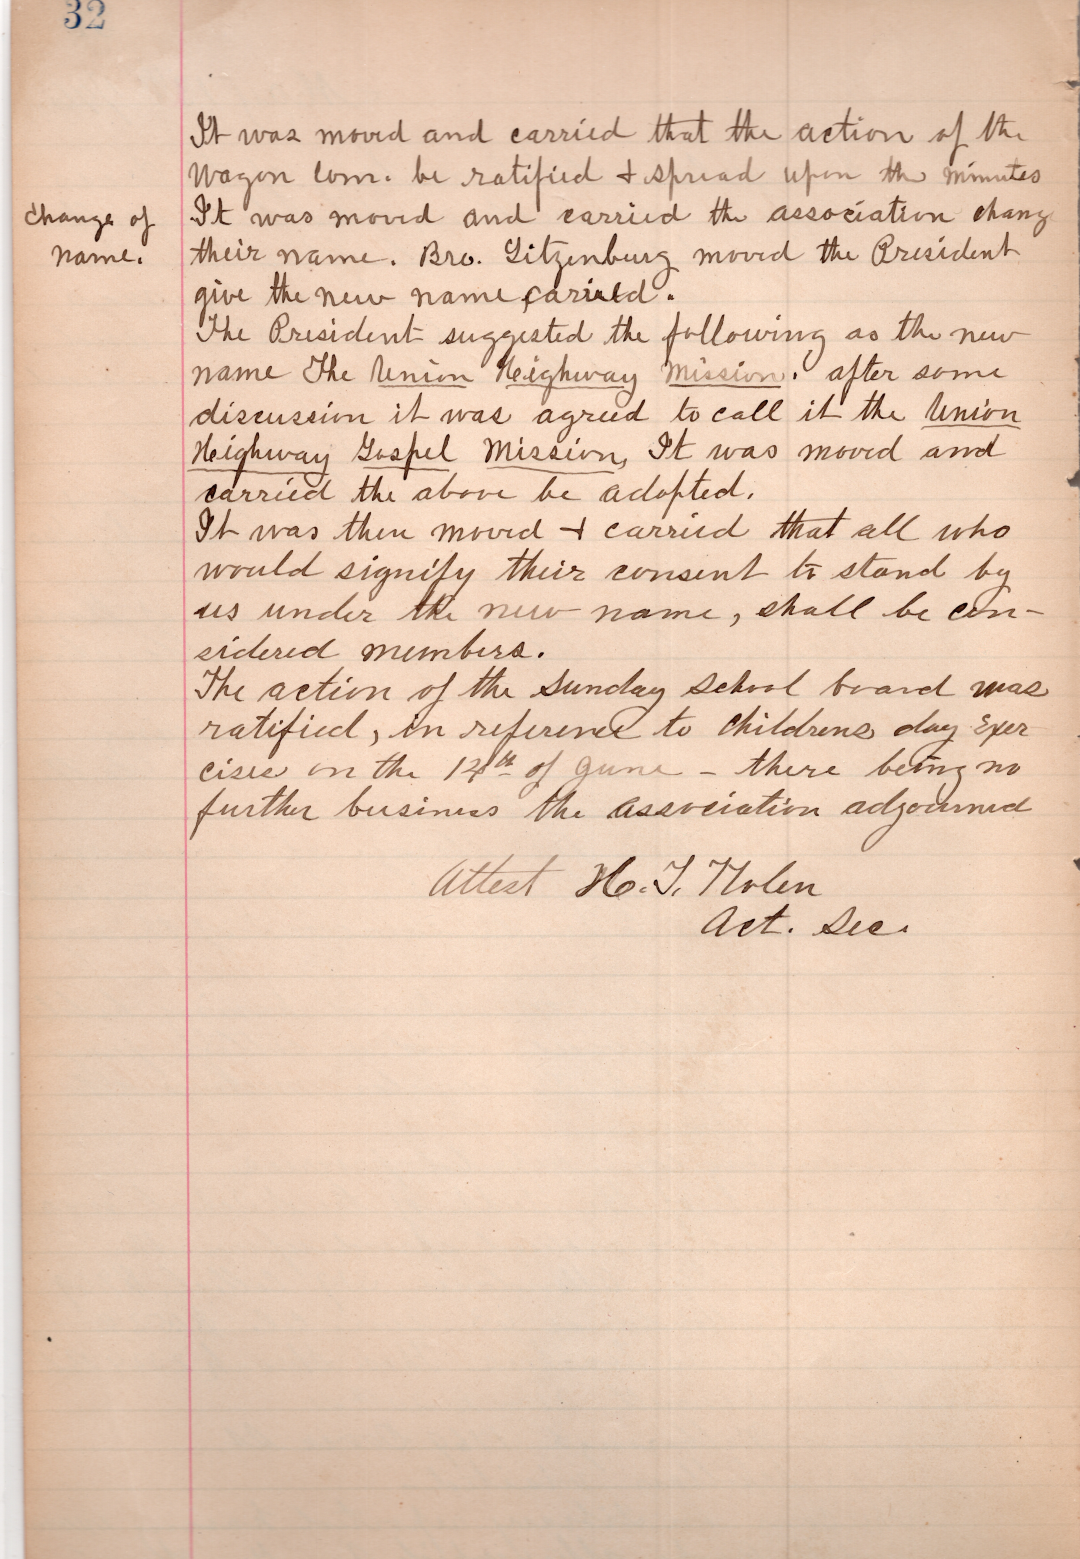 32
It was moved and carried that the action of the
Wagon Com. be ratified & spread upon the minutes
Change of
name.
It was moved and carried the association chang
their name. Bro. Gitzenburg moved the President
give the new name, carried.
The President suggested the following as the new
name The Union Heighway Mission. after some
discussion it was agreed to call it the Union
Heighway Gospel Mission, It was moved and
carried the above be adopted.
It was then moved & carried that all who
would signify their consent to stand by
us under the new name, shall be con-
sidered members.
The action of the Sunday School board was
ratified, in reference to childrens day Exer
cises on the 14th of June - there being no
further business the association adjourned
Attest H. T. Nolen
Act. Sec.